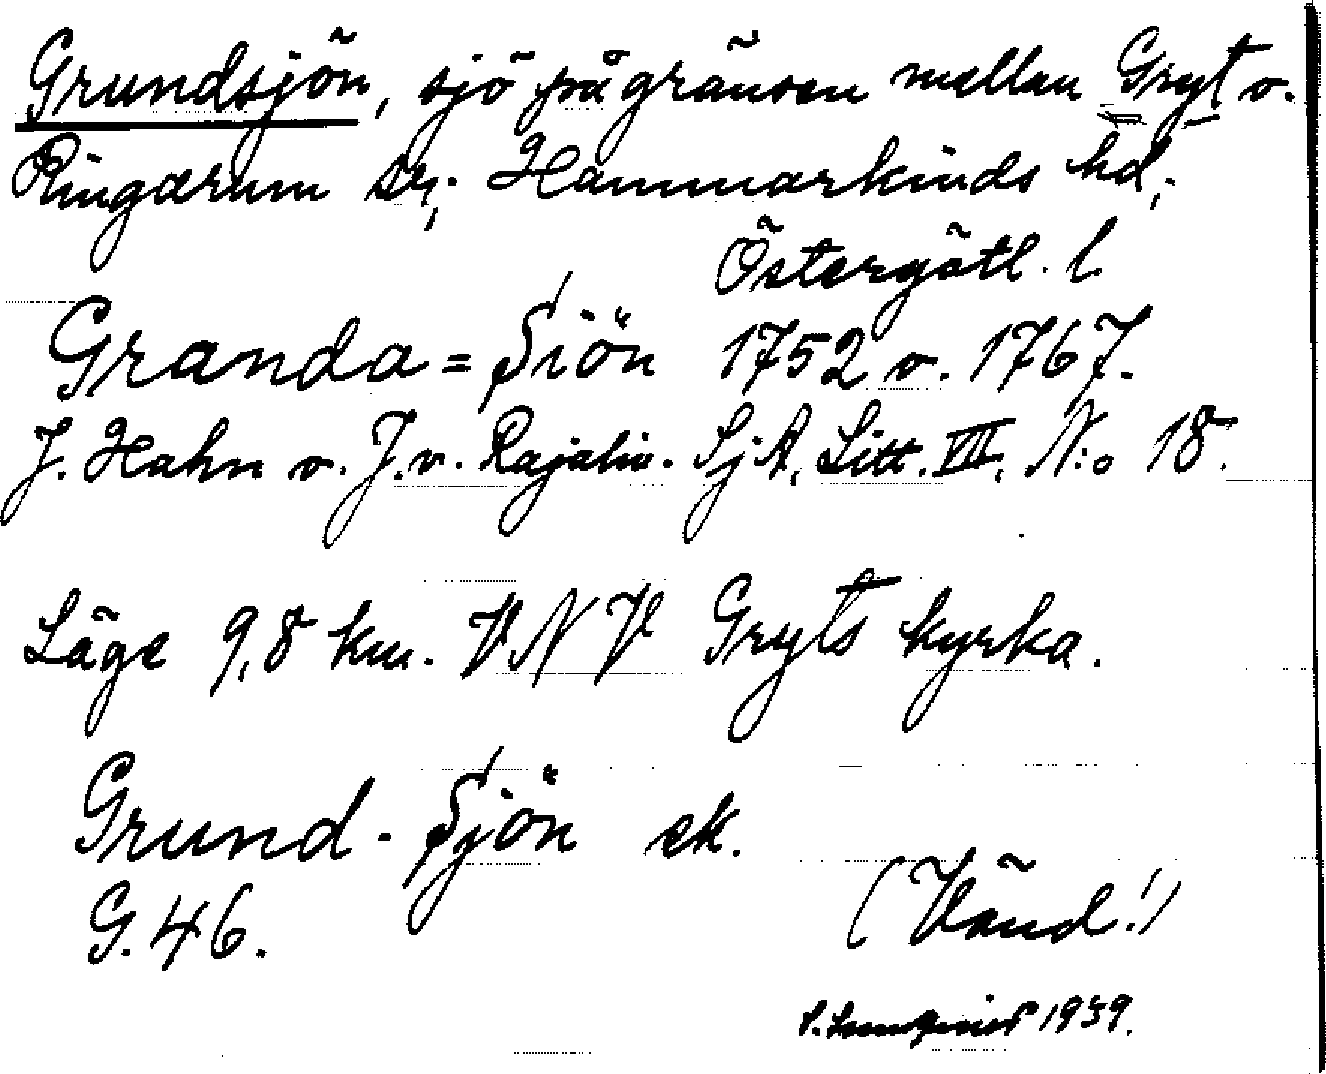 Grundsjön, sjö på gränsen mellan Gryt o.
Ringarum sn; Hammarkinds hd;
Östergötl. l.
Granda = Siön 1752 o. 1767.
J. Hahn o. J. v. Rajalin. SjA, Litt. VIII, N:o 18.
Läge 9,8 km. VNV Gryts kyrka.
Grund-Sjön ek.
G. 46.
(Vänd!)
1939.